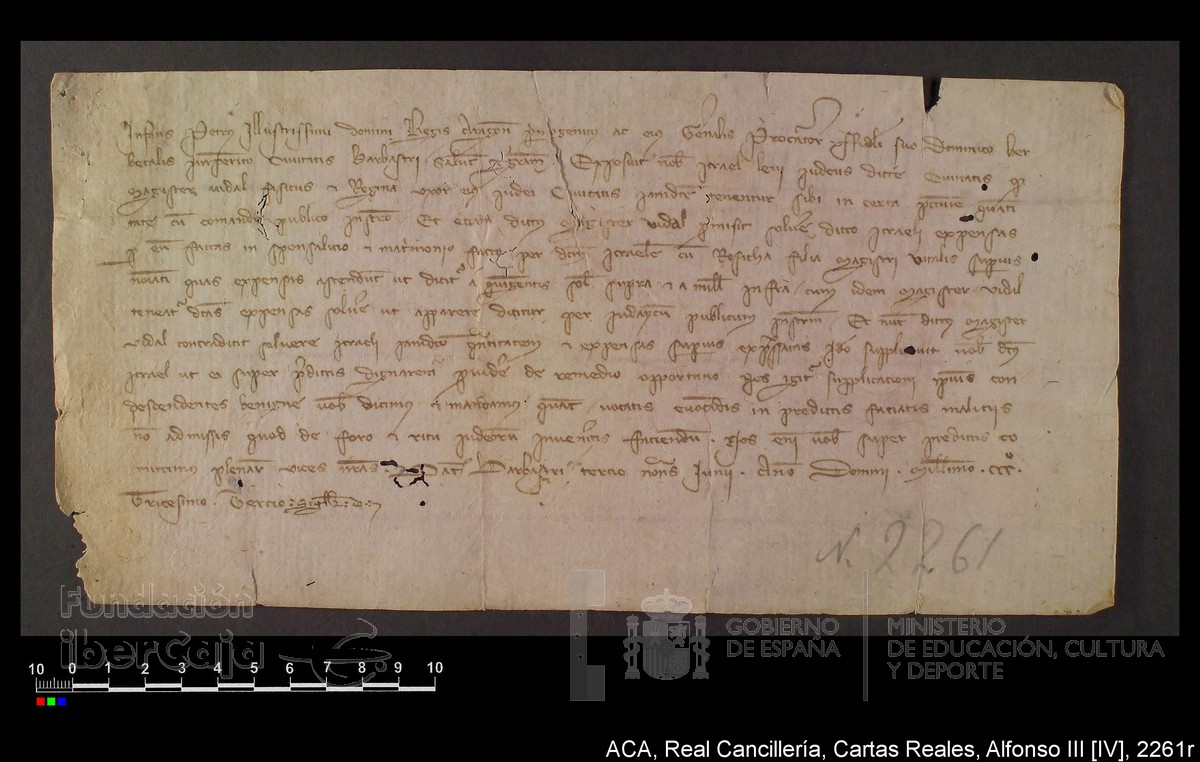 Infans Petrus Illustrissimi domini Regis Aragon primogenitus ac eius Generalis Procurator fideli suo Dominico ber
Civitatis Barbastri salutem graciam Exposuit nob Israel levi judeus dicte Civitatis q
magister vidal fisicus & Regina uxor eius judei Civitatis jamdicte tenentur sibi in certa peccunie quanti
tate cum comanda publico instro Et etiam dictus magister vidal promisit solvere dicto israeli expensas
p eum factas in sponsalicio & matrimonio facto per dcm israelem cum Rosicha filia magistri vitalis superius
noiati quas expensas ascendunt ut dicitur a quingentis sol supra & a mill infra cum idem magister vidal
teneatur dictas expensas solvere ut apparere dicitur per judaycum publicum instrum Et nunc dictus magister
vidal contradicit solvere israeli jamdicto quantitatem & expensas superius expressatas Ideo supplicavit nob dcus
israel ut ei super predictis dignaremur providere de remedio opportuno Nos igitur supplicationi ipsius con
descendentes benigne vob dicimus & mandamus quatenus vocatis evocandis in predictis faciatis maliciis
non admissis quod de foro & ritu judeorum inveneritis faciendum Nos enim vob super predictis co
mittimus plenarie vices nras Dat Barbastri tercio nonas Junii Anno Domini Millimo ccc
Tricesimo Tercio
N. 2261
Fundación
iberCaja
GOBIERNO
DE ESPAÑA
MINISTERIO
DE EDUCACIÓN, CULTURA
Y DEPORTE
10 0 1 2 3 4 5 6 7 8 9 10
ACA, Real Cancillería, Cartas Reales, Alfonso III [IV], 2261r